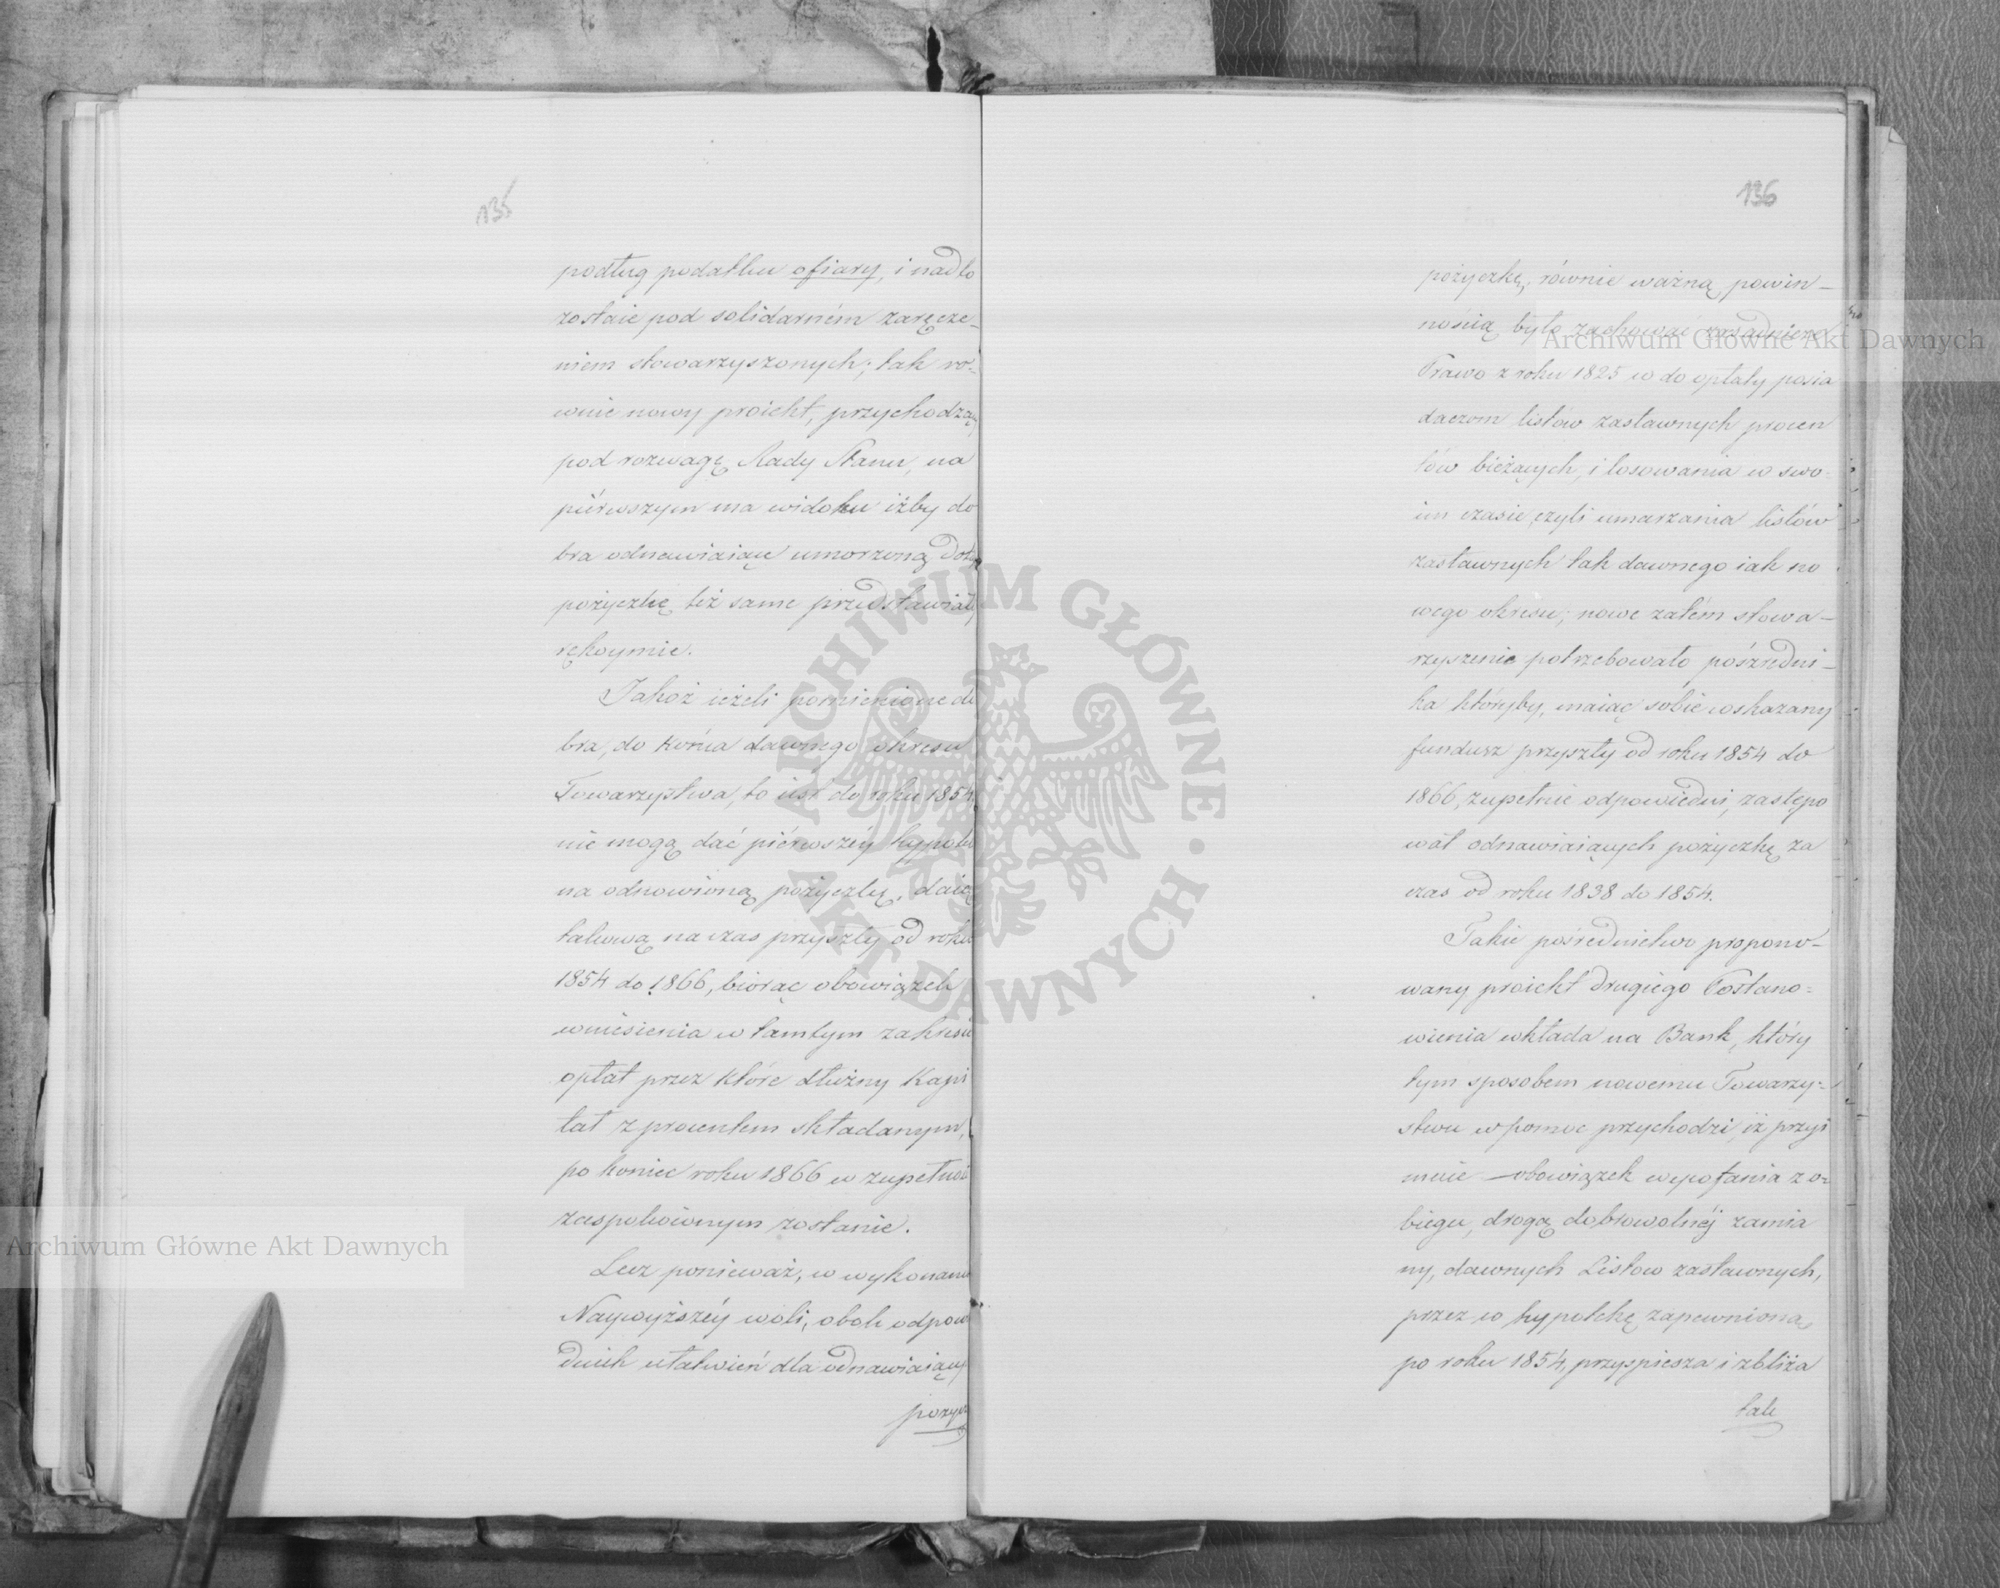 135
podług podatku ofiary, i nadto
zostaie pod solidarném zaręcze-
niem stowarzyszonych; tak ró-
wnie nowy proiekt, przychodzący
pod rozwagę Rady Stanu, na
piérwszym ma widoku iżby do
bra odnawiaiące umorzoną dotąd
pożyczkę też same przedstawiały
rękoymie.
Jakoż ieżeli pomienione do
bra, do końca dawnego okresu
Towarzystwa, to iest do roku 1854
nie mogą dać piérwszéy hypoteki
na odnowioną pożyczkę, daią
takową na czas przyszły od roku
1854 do 1866, biorąc obowiązek
wniesienia w tamtym zakresie
opłat przez które dłużny Kapi
tał z procentem składanym,
po koniec roku 1866 w zupełności
zaspokoionym zostanie.
Lecz ponieważ, w wykonaniu
Naywyższéy woli, obok odpowie
dnich ułatwień dla odnawiaiących
pożycz
136
pożyczkę, równie ważną powin-
nością było zachować zasadnicze
Prawo z roku 1825 co do opłaty posia
daczom listów zastawnych procen
tów bieżących, i losowania w swo-
im czasie, czyli umarzania listów
zastawnych tak dawnego iak no
wego okresu; nowe zatém stowa-
rzyszenie potrzebowało pośredni-
ka któryby, maiąc sobie wskazany
fundusz przyszły od roku 1854 do
1866, zupełnie odpowiedni, zastępo
wał odnawiaiących pożyczkę za
czas od roku 1838 do 1854.
Takie pośrednictwo propono-
wany proiekt drugiego Postano=
wienia wkłada na Bank, który
tym sposobem nowemu Towarzy-
stwu w pomoc przychodzi, iż przyi
muie obowiązek wycofania z o-
biegu, drogą dobrowolnéj zamia
ny, dawnych Listów zastawnych,
przez co hypotekę zapewnioną
po roku 1854, przyspiesza i zbliża
tak
Archiwum Główne Akt Dawnych
Archiwum Główne Akt Dawnych
· ARCHIWUM GŁÓWNE · AKT DAWNYCH